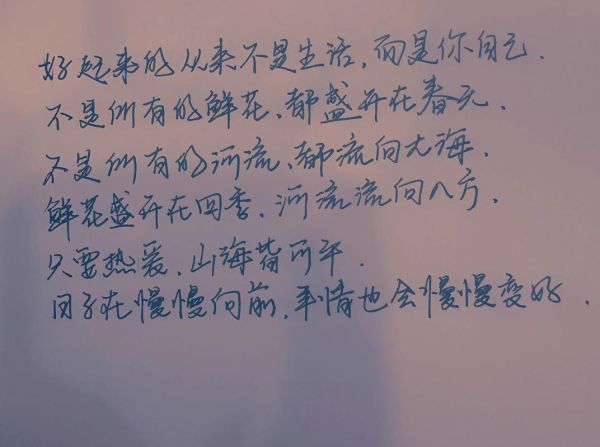 好起来的从来不是生活,而是你自己.
不是所有的鲜花,都盛开在春天.
不是所有的河流,都流向大海.
鲜花盛开在四季,河流流向八方.
只要热爱,山海皆可平.
日子在慢慢向前,事情也会慢慢变好.